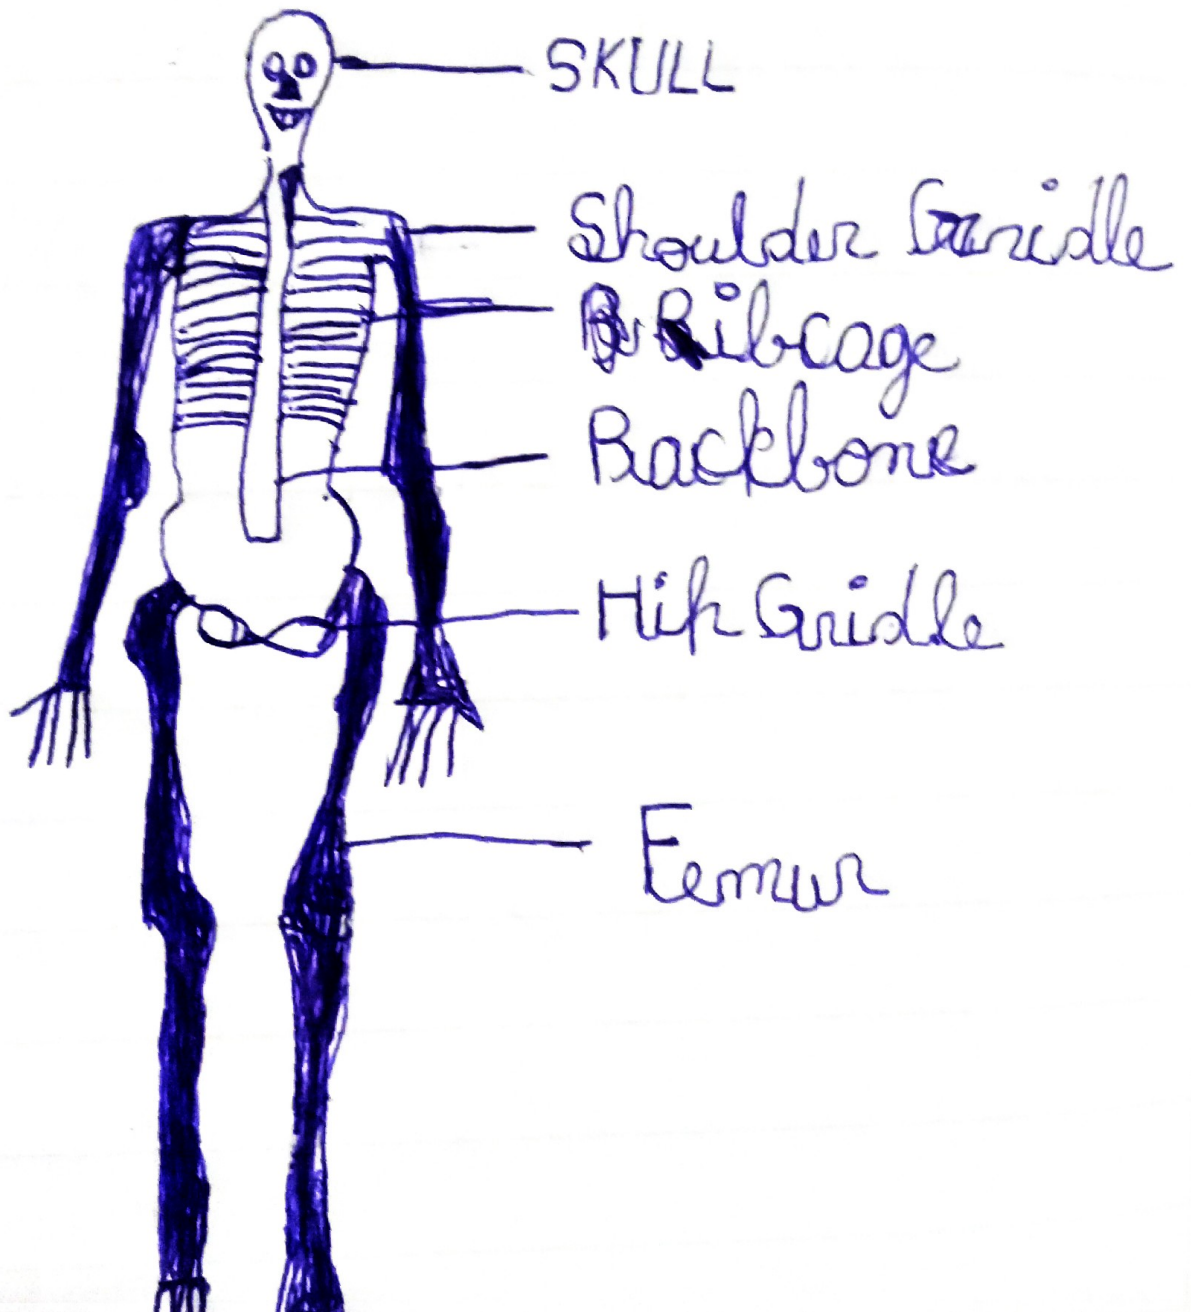 SKULL
Shoulder Gridle
Ribcage
Backbone
Hip Gridle
Femur